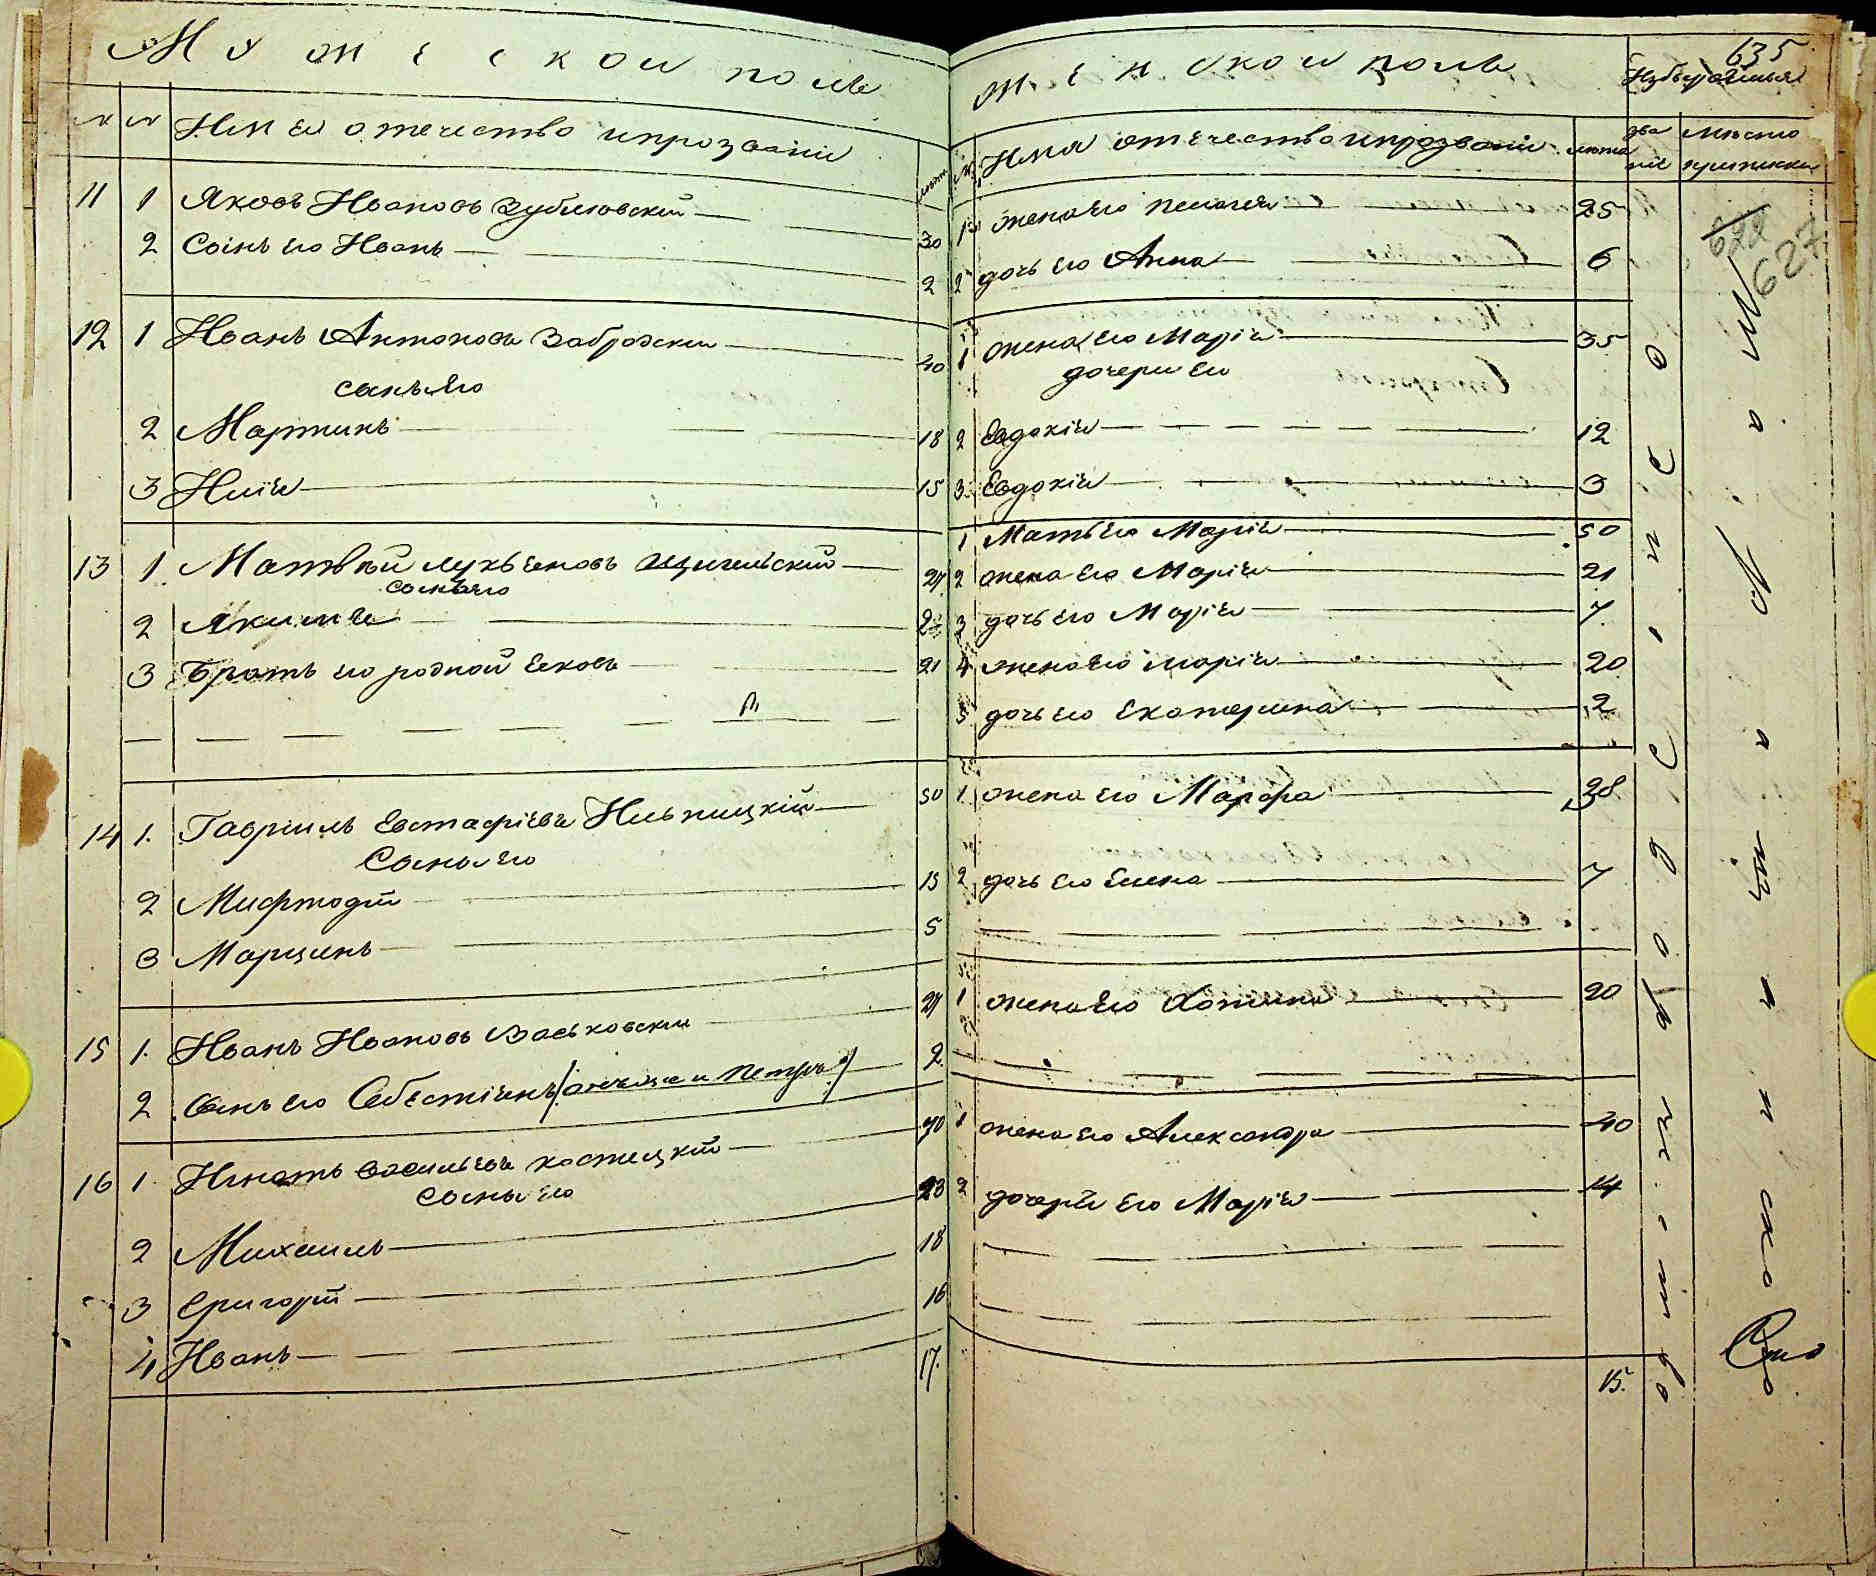 Мужескои полъ
№ № Имѧ отечество и прозваніи лета
11 1 Яковъ Ивановъ 30
2 Сынъ его Иванъ 2
12 1 Иванъ Антоновъ Забродскіи 40
сынъ его
2 Мартинъ 18
3 Илія 15
13 1 Матвѣй Лукьяновъ
сынъ его
2 Якимъ
3 Братъ его родной Яковъ 21
14 1. Гавріилъ Евстафіевъ Ильницкій 50
Сыны его
2 Мифтодій 15
3 Марцинъ 5
15 1. Иванъ Ивановъ Васьковскіи
2 Сынъ его Себестіянъ 2
16 1 Игнатъ Васильевъ Костецкій
Сыны его 23
2 Михаилъ 18
3 Григорій 16
4 Иванъ 17.
Женскои полъ
635
№ Имя отечество и прозваніи лета званіе место приписки
622
627
1 жена его Пелагея 25
2 дочь его Анна 6
1 жена его Марія 35
дочери его
2 Евдокія 12
3 Евдокія 3
1 Мать его Марія 50
2 жена его Марія 21
3 дочь его Марія 7
4 жена его Марія 20
5 дочь его Екатерина 2
1 жена его Марфа 28
2 дочь его Елена 7
1 жена его 20
1 жена его Александра 40
2 дочери его Марія 14
15.